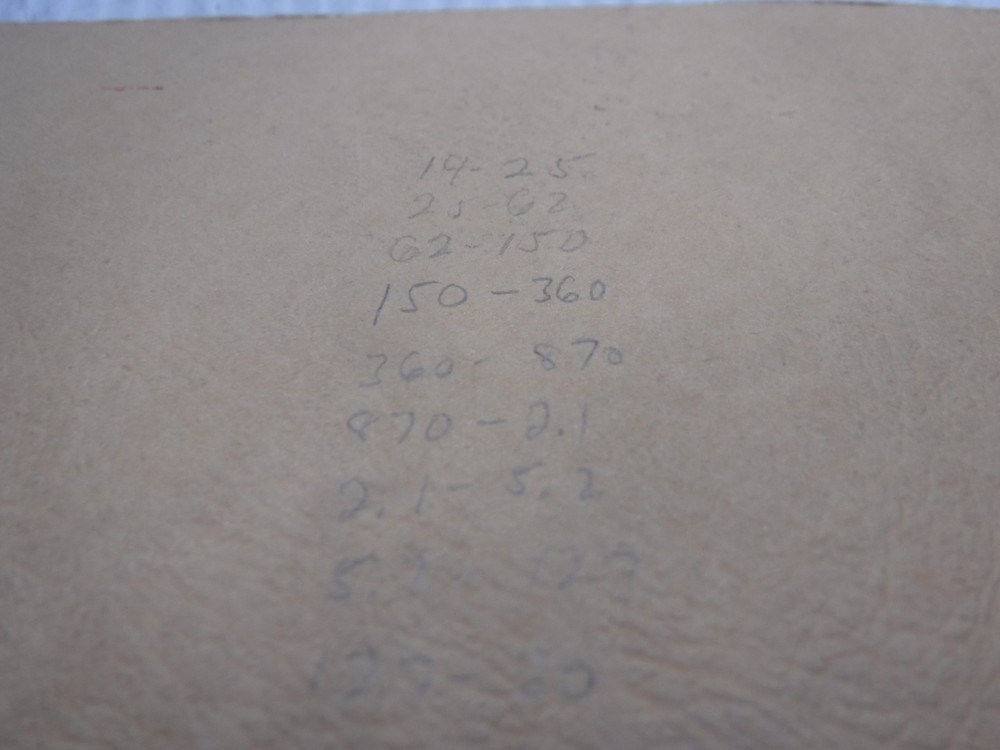 14-25
25-62
62-150
150-360
360-870
870-2.1
2.1-5.2